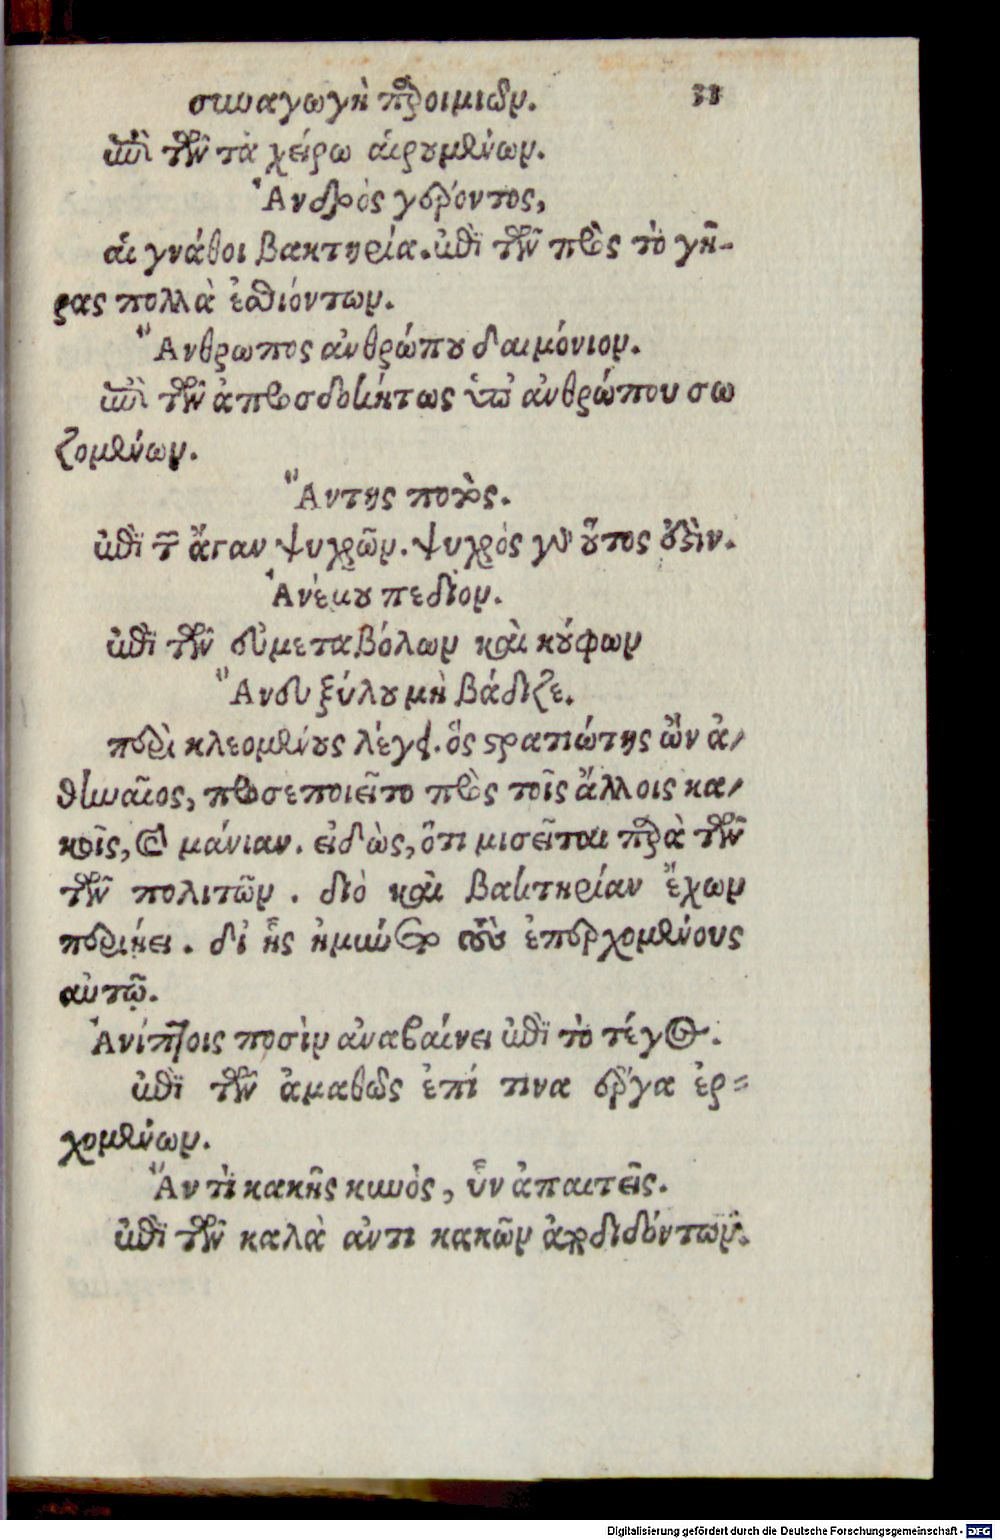 συναγωγὴ παροιμιῶν. 33
ἐπὶ τῶν τὰ χείρω αἱρουμένων.
Ἀνδρὸς γέροντος,
αἱ γνάθοι βακτηρία. ἐπὶ τῶν πρὸς τὸ γῆ-
ρας πολλὰ ἐσθιόντων.
Ἄνθρωπος ἀνθρώπου δαιμόνιον.
ἐπὶ τῶν ἀπροσδοκήτως ὑπ' ἀνθρώπου σω
ζομένων.
Ἄντης πυρὸς.
ἐπὶ τῶν ἄγαν ψυχρῶν. ψυχρὸς γὰρ οὗτος
Ἀνέμου πεδίον.
ἐπὶ τῶν εὐμεταβόλων καὶ κούφων
Ἄνευ ξύλου μὴ βάδιζε.
περὶ κλεομένους λέγει. ὃς στρατιώτης ὢν ἀ-
θηναῖος, προσεποιεῖτο πρὸς τοῖς ἄλλοις κα-
κοῖς, καὶ μάνιαν. εἰδὼς, ὅτι μισεῖται παρὰ τῶν
τῶν πολιτῶν. διὸ καὶ βακτηρίαν ἔχων
περιῄει. δι' ἧς ἠμύνετο τοὺς ἐπερχομένους
αὐτῷ.
Ἀνίπτοις ποσὶν ἀναβαίνει ἐπὶ τὸ τέγος.
ἐπὶ τῶν ἀμαθῶς ἐπί τινα ἔργα ἐρ-
χομένων.
Ἄντὶ κακῆς κυνὸς, ὗν ἀπαιτεῖς.
ἐπὶ τῶν καλὰ ἀντι κακῶν ἀποδιδόντων.
Digitalisierung gefördert durch die Deutsche Forschungsgemeinschaft - DFG